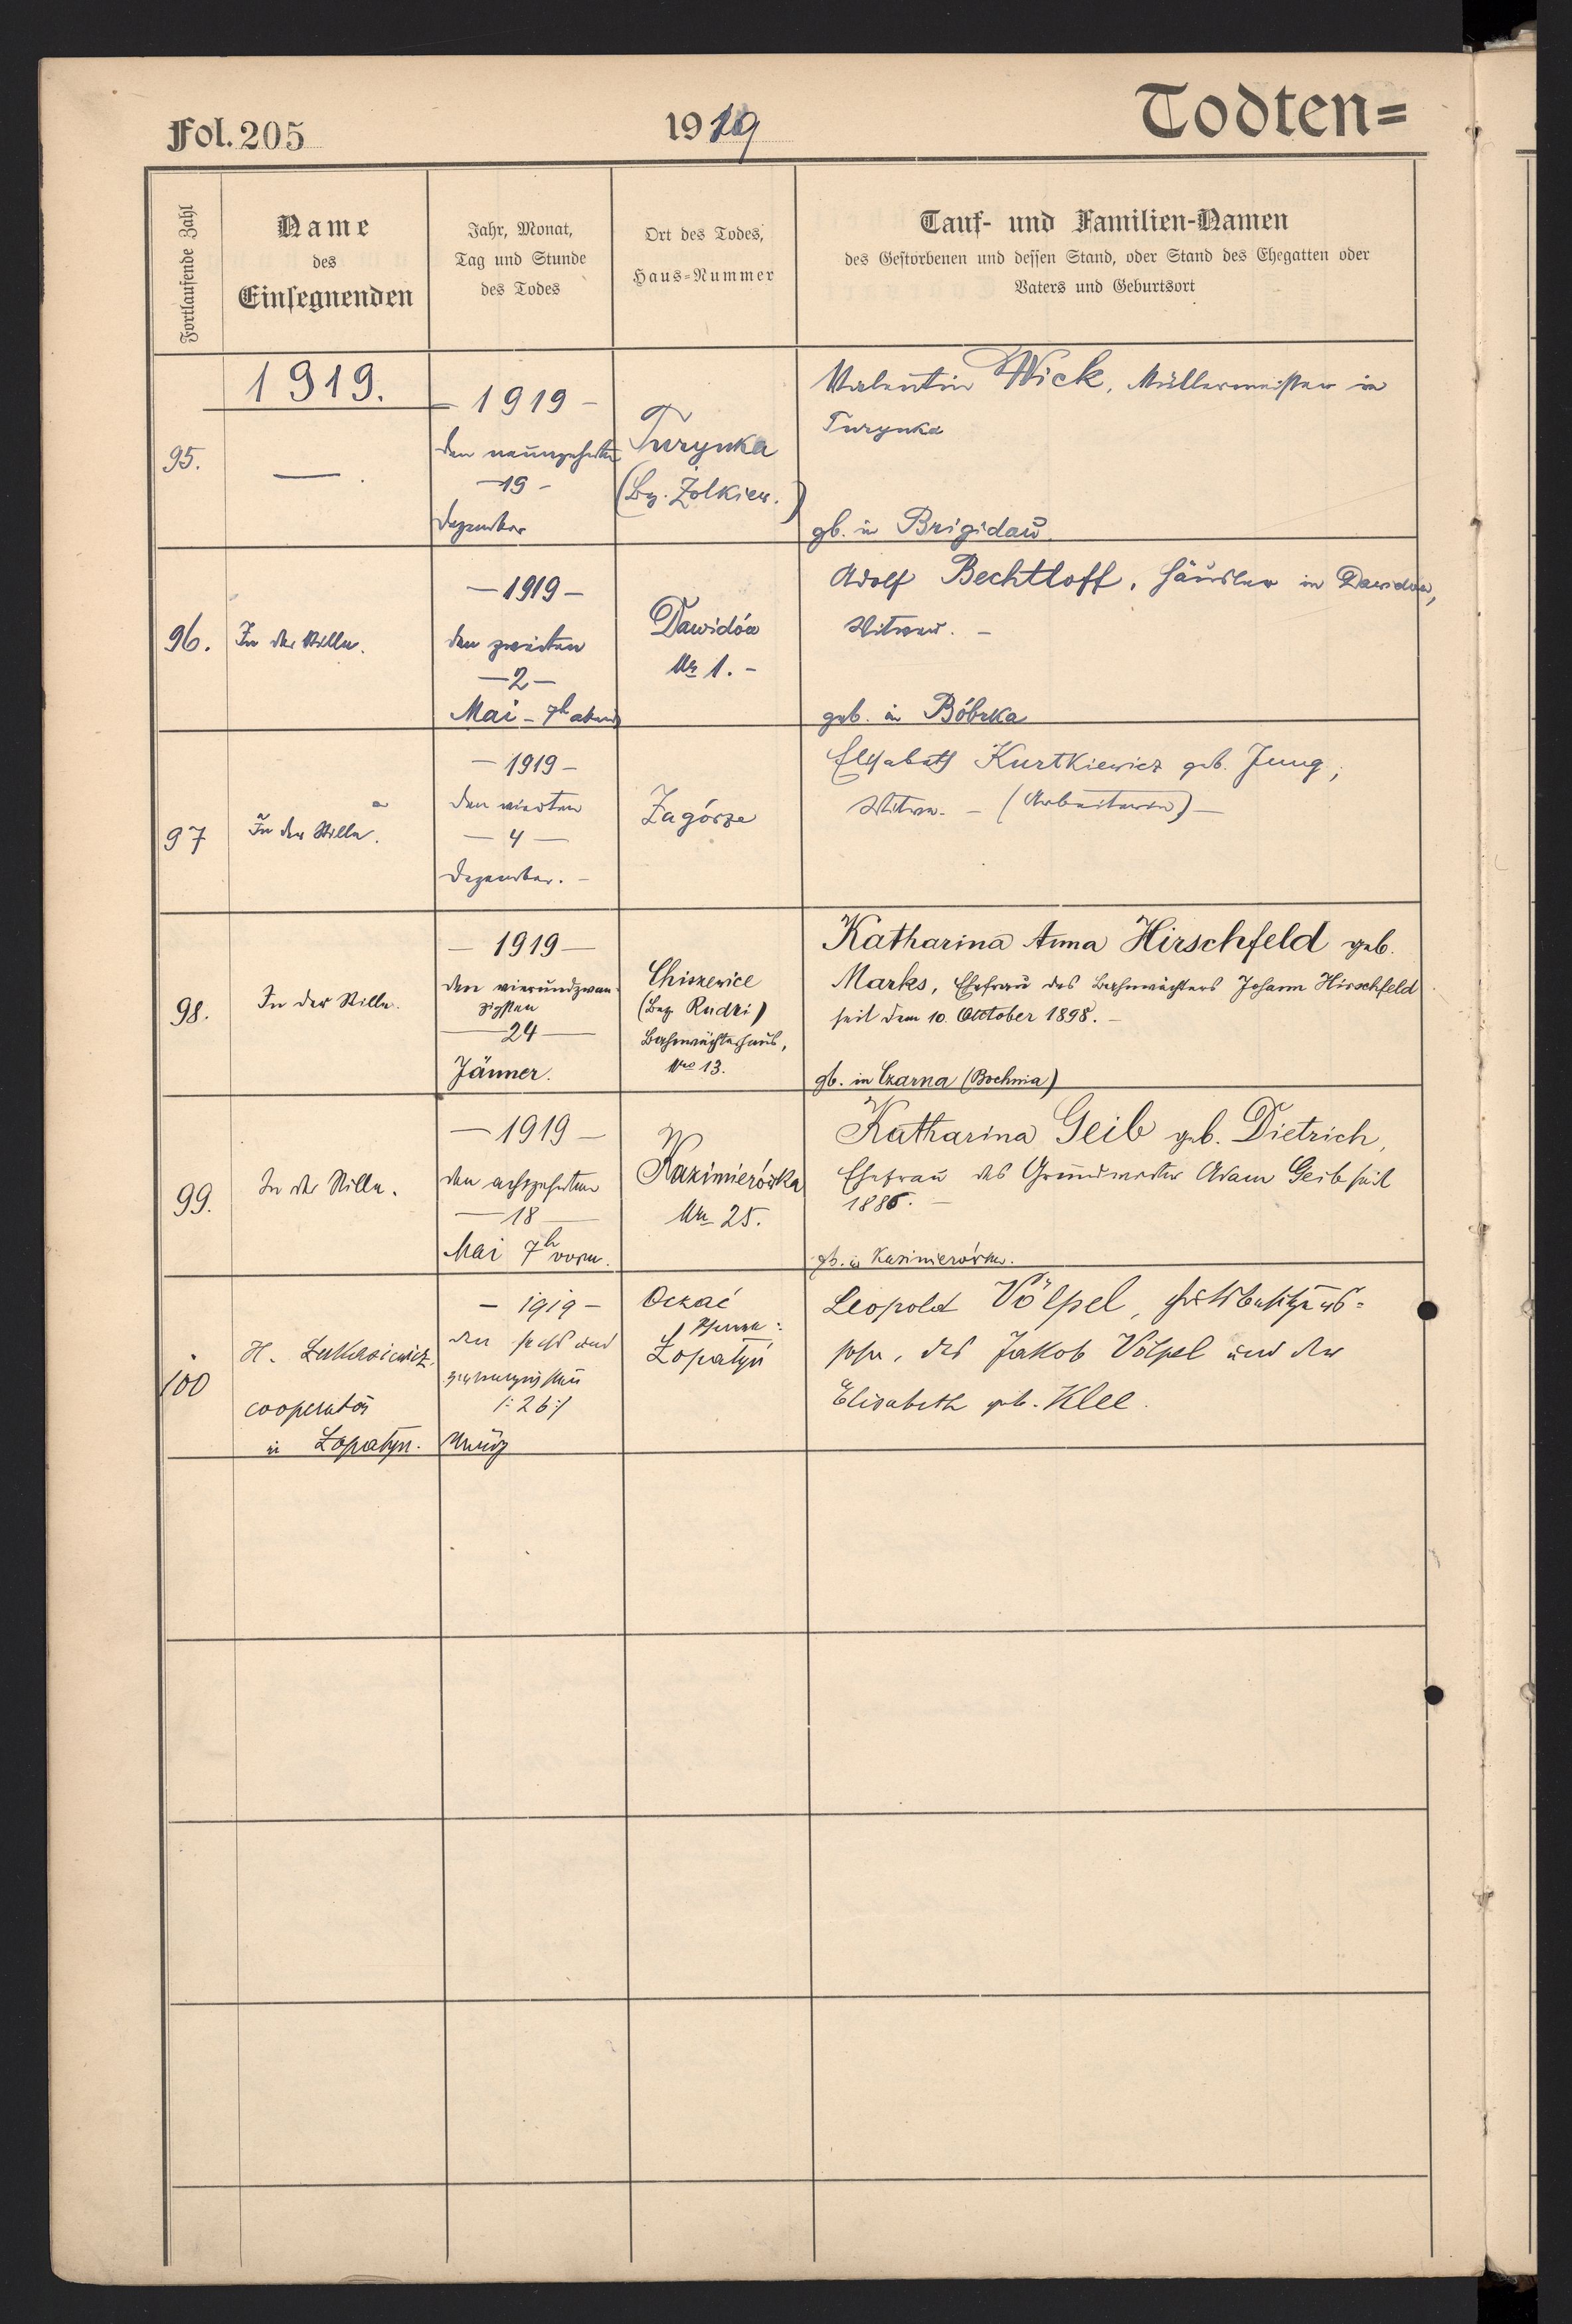 Fol. 205
1919
Todten=
Fortlaufende Zahl
Name
des
Einsegnenden
Jahr, Monat,
Tag und Stunde
des Todes
Ort des Todes,
Haus-Nummer
Tauf- und Familien-Namen
des Gestorbenen und dessen Stand, oder Stand des Ehegatten oder
Vaters und Geburtsort
1919.
95.
—
— 1919 —
den neunzehnten
— 19 —
Dezember
Turynka
(Bz. Żolkiew.)
Valentin Wick, Müllermeister in
Turynka
gb. in Brigidau
96.
In der Stille.
— 1919 —
den zweiten
— 2 —
Mai – 7h abends
Dawidów
Nr 1. –
Adolf Bechtloff, Häusler in Dawidów,
Witwer. –
geb. in Bóbrka
97
In der Stille.
— 1919 —
den vierten
— 4 —
Dezember. –
Zagórze
Elisabeth Kurtkiewicz geb. Jung,
Witwe. – (Arbeiterin) –
98.
In der Stille.
— 1919 —
den vierundzwan-
zigsten
— 24 —
Jänner.
Chiszewice
(Bez. Rudki)
Bahnwächterhaus,
Nro 13.
Katharina Anna Hirschfeld geb.
Marks, Ehefrau des Bahnwächters Johann Hirschfeld
seit dem 10. October 1898. –
gb. in Czarna (Bochnia)
99.
In der Stille.
— 1919 —
den achtzehnten
— 18 —
Mai 7h vorm.
Kazimierówka
Nr. 25.
Katharina Geib geb. Dietrich,
Ehefrau des Grundwirten Adam Geib seit
1886. –
gb. in Kazimierówka.
100
H. Łukasiewicz,
cooperator
in Łopatyn.
– 1919 –
den sechs und
zwanzigsten
/: 26 :/
März
Oczać
Pfarre:
Łopatyn
Leopold Völpel, Gutsbesitzers=
sohn, des Jakob Völpel und der
Elisabeth geb. Klee.